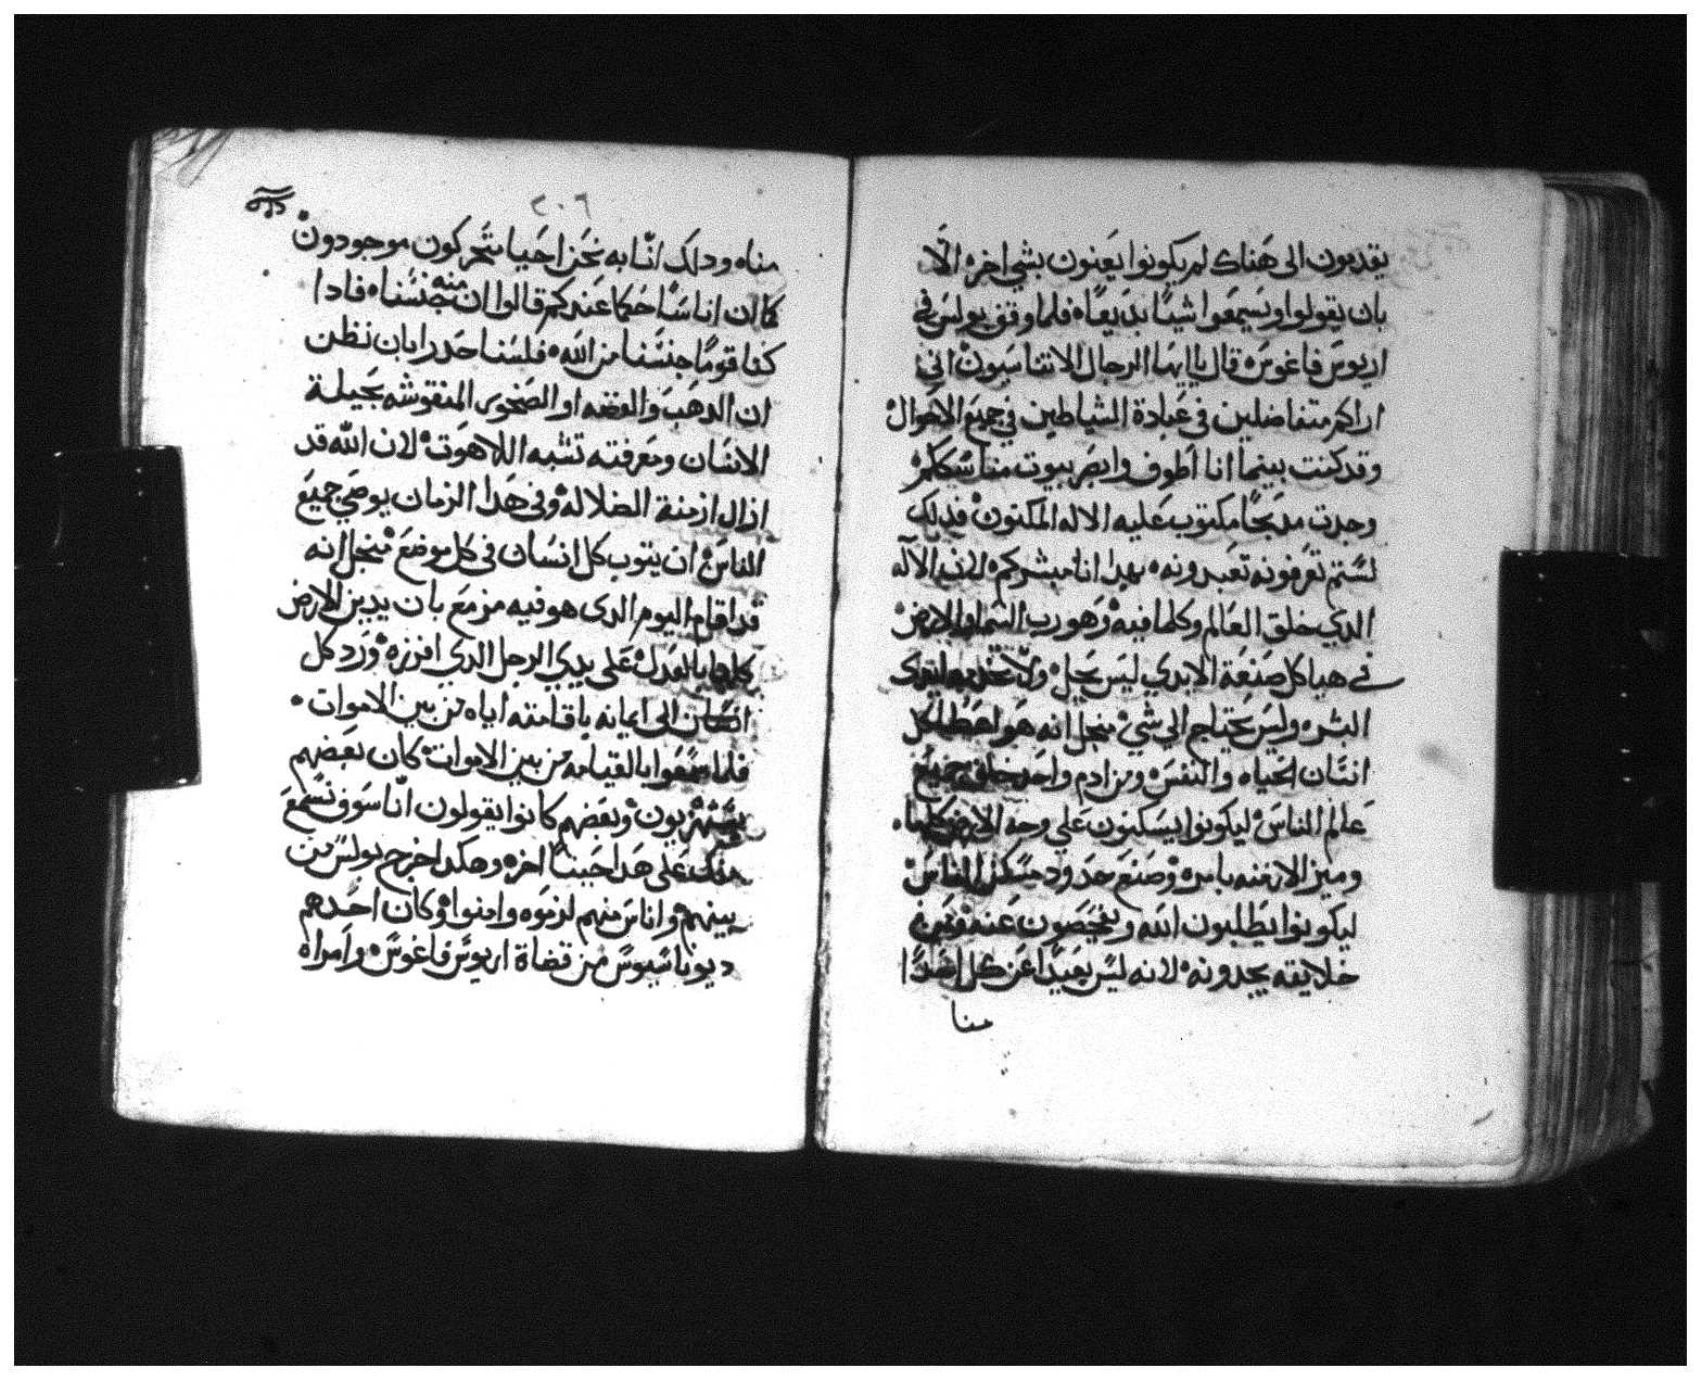 يقدمون الى هناك لم يكونوا يعنون بشي اخره الا
بان يقولوا ويسمعوا شيئا بديعا ه فلما وقف بولس في
اريوس فاغوس ه قال يا ايها الرجال الاتناسيون اني
اراكم متفاضلين في عبادة الشياطين في جميع الاحوال
وقد كنت بينما انا اطوف وابصر بيوت مناسككم
وجدت مدبحا مكتوب عليه الاله المكنون فدلك
لستم تعرفونه تعبدونه ه بهدا انا مبشركم ه لان الاله
الدي خلق العالم وكلما فيه وهو رب السما والارض
في هياكل صنعة الايدي ليس يحل ه ولا تخدمه ايدي
البشر ه وليس يحتاج الى شي منجل انه هو اعطا لكل
انسان الحياه والنفس ه ومن ادم واحد خلق جميع
عالم الناس ليكونوا يسكنون علي وجه الارض كلها ه
وميز الازمنه بامره وصنع حدود مسكن الناس
ليكونوا يطلبون الله ويفحصون عنه ومن
خلايقته يجدونه ه لانه ليس بعيدا عن كل احدا
منا
٢٠٦
مناه ودلك انا به نحن احيا متحركون موجودون
كما ان اناسا حكما عندكم قالوا ان منه جنسنا ه فادا
كنا قوما جنسنا من الله ه فلسنا حدرا بان نظن
ان الدهب والفضه او الصخور المنقوشه بحيلة
الانسان ومعرفته تشبه اللاهوت لان الله قد
ازال ازمنة الضلاله وفي هدا الزمان يوصي جميع
الناس ان يتوب كل انسان في كل موضع منجل انه
قد اقام اليوم الدى هو فيه مزمع بان يدين الارض
كلها بالعدل على يدي الرجل الدي افرزه ورد كل
انسان الى ايمانه باقامته اياه من بين الاموات ه
فلما سمعوا بالقيامه من بين الاموات كان بعضهم
يستهزيون وبعضهم كانوا يقولون انا سوف نسمع
منك على هدا حينا اخره وهكدا خرج بولس من
بينهم واناس منهم لزموه وامنوا وكان احدهم
ديوناسيوس من قضاة اريوس فاغوس وامراه